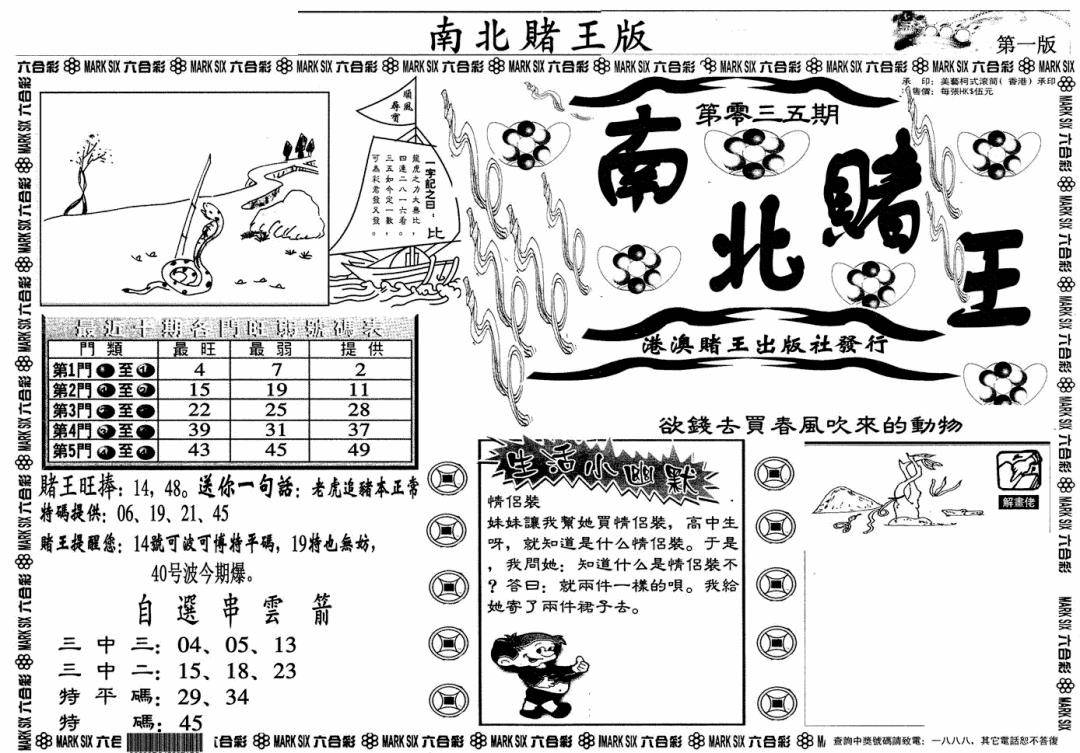 南北賭王版
第一版
六合彩 MARK SIX 六合彩 MARK SIX 六合彩 MARK SIX 六合彩 MARK SIX 六合彩 MARK SIX 六合彩 MARK SIX 六合彩 MARK SIX 六合彩 MARK SIX 六合彩 MARK SIX 六合彩 MARK SIX
承 印：美藝柯式滾筒（香港）承印
售價：每張HK$伍元
順風
尋寶
一字記之曰：比
龍虎之力大無比，
四連二八一六看。
三五如今定一數，
可為彩君發又發。
第零三五期
南北賭王
港澳賭王出版社發行
最近十期各門旺弱號碼表
門類 最旺 最弱 提供
第1門 至 4 7 2
第2門 至 15 19 11
第3門 至 22 25 28
第4門 至 39 31 37
第5門 至 43 45 49
賭王旺捧：14，48。送你一句話：老虎追豬本正常
特碼提供：06、19、21、45
賭王提醒您：14號可波可博特平碼，19特也無妨，
40号波今期爆。
自選串雲箭
三中三：04、05、13
三中二：15、18、23
特平碼：29、34
特碼：45
欲錢去買春風吹來的動物
生活小幽默
情侶裝
妹妹讓我幫她買情侶裝，高中生
呀，就知道是什么情侶裝。于是
，我問她：知道什么是情侶裝不
？答曰：就兩件一樣的唄。我給
她寄了兩件裙子去。
解畫佬
MARK SIX 六合彩 MARK SIX 六合彩 MARK SIX 六合彩 MARK SIX 六合彩 MARK SIX 六合彩 MARK SIX 六合彩
查詢中獎號碼請致電：一八八八，其它電話恕不答復